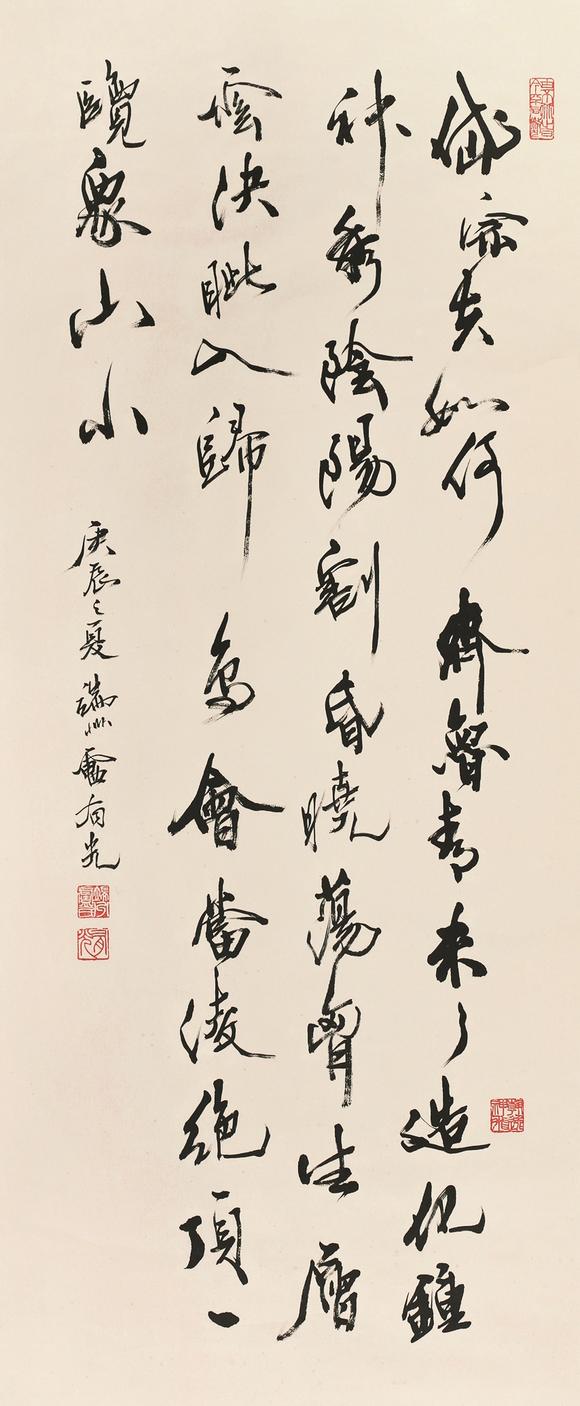 岱宗夫如何齊魯青未了造化鍾
神秀陰陽割昏曉蕩胷生層
雲決眦入歸鳥會當淩絕頂一
覽衆山小
庚辰之夏 有光